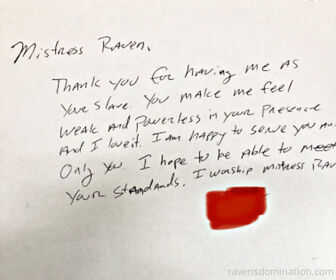 Mistress Raven,
Thank you for having me as
your slave. You make me feel
weak and powerless in your presence
and I love it. I am happy to serve you
only you. I hope to be able to meet
your standards. I worship mistress
ravensdomination.com